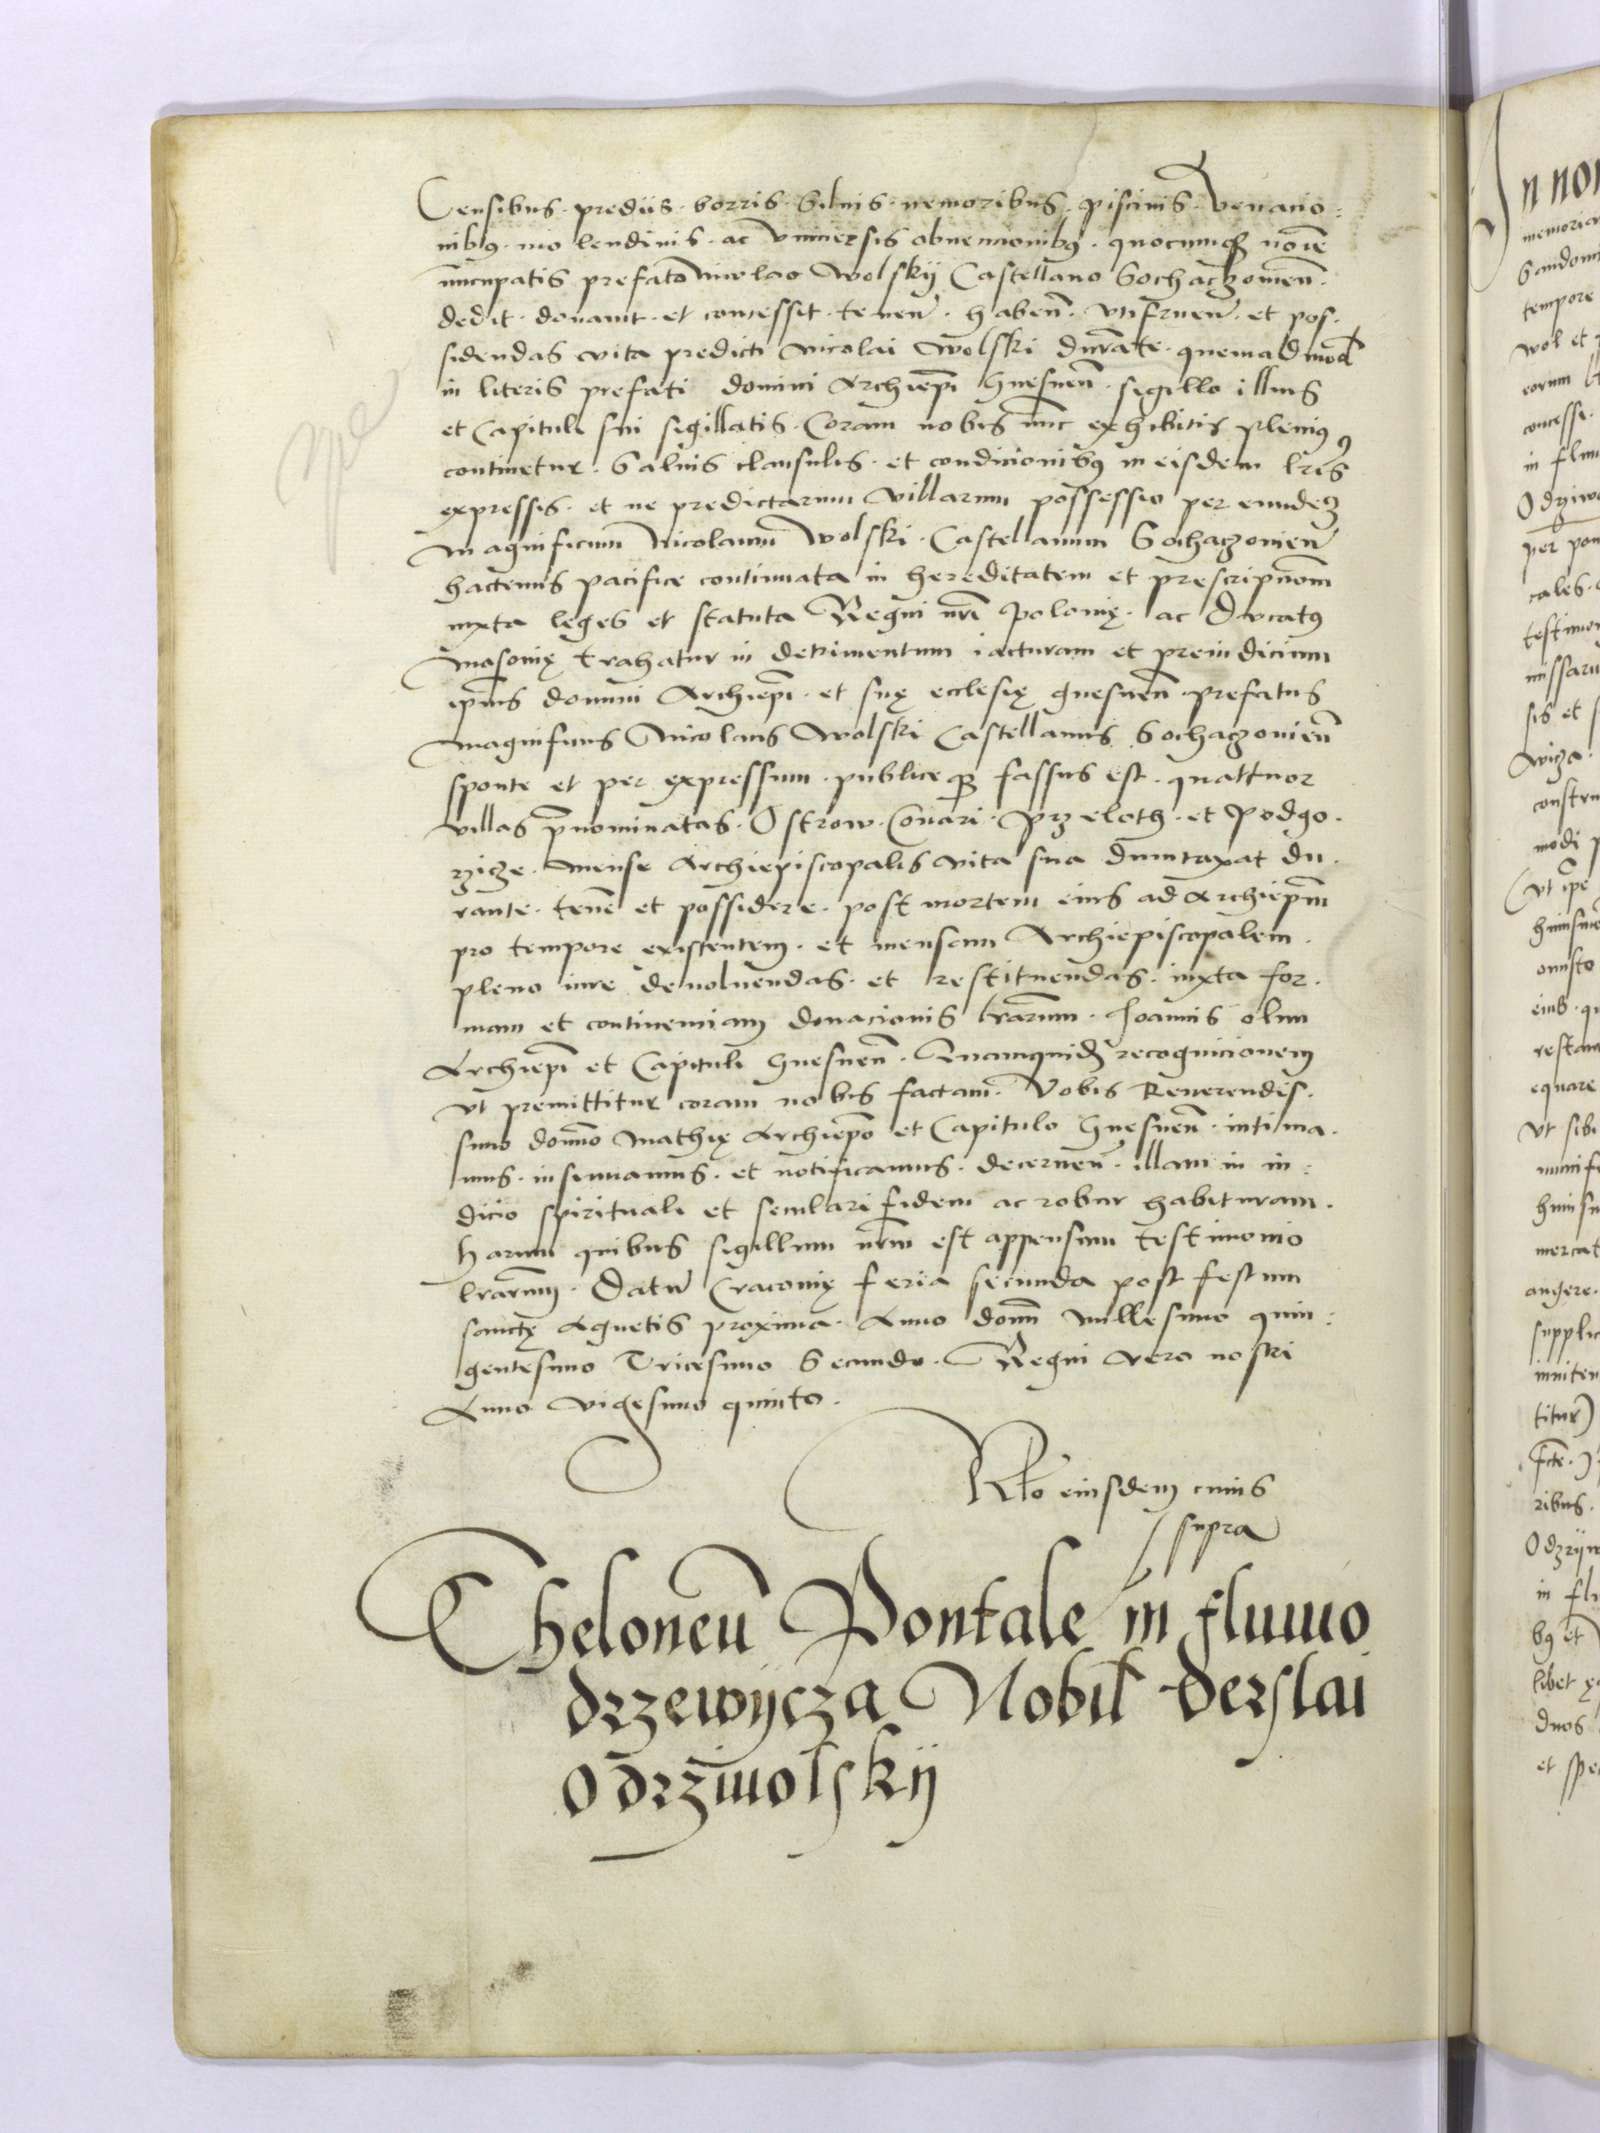 Censibus · prediis · borris · siluis · nemoribus · piscinis · venacio:
nibꝯ · molendinis · ac vniuersis obuencionibꝯ · quocumqꝫ noīe
nuncupatis prefato Nicolao Wolskij Castellano Sochaczouień ·
dedit · donauit · et concessit · teneñ · habeñ · vtifrueñ · et pos ·
sidendas vita predicti Nicolai Wolski durāte · quemadmod
in literis prefati domini Archiepī Gnesneń · sigillo illius
et Capituli sui sigillatis · Coram nobis nūc exhibitis pleniꝯ
continetur · Saluis clausulis · et condicionibꝯ in eisdem lr̄is
expressis · et ne predictarum villarum possessio per eundeꝫ
Magnificum Nicolaum Wolski · Castellanum Sochaczouień
hactenus pacifice continuata in hereditatem et prescripcōnem
iuxta leges et statuta Regni nr̄i Polonię · ac Ducatꝯ
Masouię trahatur in detrimentum iacturam et preiudicium
ipīus domini Archiepī · et suę ecclesię gnesneń · prefatus
Magnificus Nicolaus Wolski Castellanus Sochaczouień
sponte et per expressum · publiceqꝫ fassus est · quattuor
villas p̄nominatas · Ostrow · Conari · Przeloth · et Podgo ·
rzicze · mense Archiepiscopalis vita sua dumtaxat du ·
rante · tenē et possidere · post mortem eius ad Archiepm̄
pro tempore existentem · et mensam Archiepiscopalem ·
pleno iure deuoluendas · et restituendas · iuxta for ·
mam et continenciam donacionis lr̄arum · Joannis olim
Archiepī et Capituli Gnesneń · Quamquidē recognicionem
vt premittitur coram nobis factam · Vobis Reuerendis ·
simo domō Mathię Archiepō et Capitulo Gnesneń · intima ·
mus · insinuamus · et notificamus · decerneñ · illam in iu:
dicio spirituali et seculari fidem ac robur habituram ·
Harum quibus sigillum nr̄m est appensum testimonio
lr̄arum · Datū Cracouię feria secunda post festum
sanctę Agnetis proxima · Anno domī Millesimo quin:
gentesimo Tricesimo Secundo · Regni vero nostri
Anno vigesimo quinto ·
Rlō eiusdem cuius
supra
Theloneū Pontale in fluuio
drzewijcza Nobil derslai
Odrziwolskij